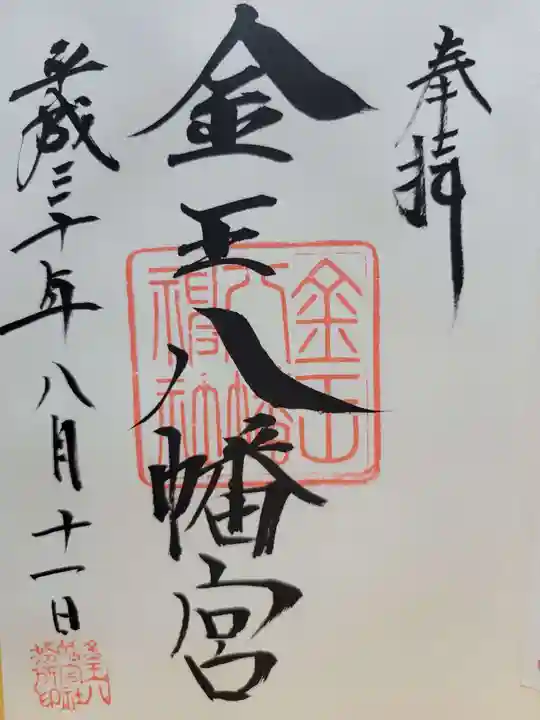 奉拝
金王八幡宮
金王八幡神社
平成三十年八月十一日